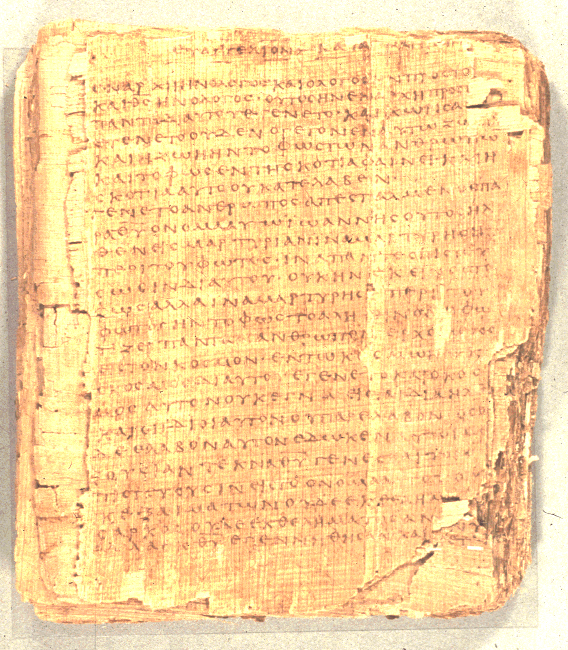 ΕΥΑΓΓΕΛΙΟΝ ΚΑΤΑ
ΕΝ ΑΡΧΗ ΗΝ Ο ΛΟΓΟΣ ΚΑΙ Ο ΛΟΓΟΣ ΗΝ ΠΡΟΣ ΤΟ
ΚΑΙ ΘΣ ΗΝ Ο ΛΟΓΟΣ · ΟΥΤΟΣ ΗΝ ΕΝ ΑΡΧΗ ΠΡΟΣ
ΠΑΝΤΑ ΔΙ ΑΥΤΟΥ ΕΓΕΝΕΤΟ ΚΑΙ ΧΩΡΙΣ
ΕΓΕΝΕΤΟ ΟΥΔΕΝ Ο ΓΕΓΟΝΕΝ ΕΝ ΑΥΤΩ
ΚΑΙ Η ΖΩΗ ΗΝ ΤΟ ΦΩΣ ΤΩΝ ΑΝΘΡΩΠΩ
ΚΑΙ ΤΟ ΦΩΣ ΕΝ ΤΗ ΣΚΟΤΙΑ ΦΑΙΝΕΙ ΚΑΙ Η
ΣΚΟΤΙΑ ΑΥΤΟ ΟΥ ΚΑΤΕΛΑΒΕΝ
ΕΓΕΝΕΤΟ ΑΝΘΡΩΠΟΣ ΑΠΕΣΤΑΛΜΕΝΟΣ ΠΑ
ΡΑ ΘΥ ΟΝΟΜΑ ΑΥΤΩ ΙΩΑΝΝΗΣ ΟΥΤΟΣ ΗΛ
ΘΕΝ ΕΙΣ ΜΑΡΤΥΡΙΑΝ ΙΝΑ ΜΑΡΤΥΡΗΣΗ
ΠΕΡΙ ΤΟΥ ΦΩΤΟΣ · ΙΝΑ ΠΑΝΤΕΣ
ΣΩΣΙΝ ΔΙ ΑΥΤΟΥ · ΟΥΚ ΗΝ ΕΚΕΙΝΟΣ ΤΟ
ΦΩΣ ΑΛΛΑ ΙΝΑ ΜΑΡΤΥΡΗΣΗ ΠΕΡΙ ΤΟΥ
ΦΩΤΟΣ ΗΝ ΤΟ ΦΩΣ ΤΟ ΑΛΗ
ΤΙΖΕΙ ΠΑΝΤΑ ΑΝΘΡΩΠΟΝ
ΕΙΣ ΤΟΝ ΚΟΣΜΟΝ · ΕΝ ΤΩ ΚΟΣΜΩ ΗΝ
ΚΟΣΜΟΣ ΔΙ ΑΥΤΟΥ ΕΓΕΝΕΤΟ ΚΑΙ Ο ΚΟΣ
ΜΟΣ ΑΥΤΟΝ ΟΥΚ ΕΓΝΩ ΕΙΣ ΤΑ ΙΔΙΑ ΗΛΘΕ
ΚΑΙ ΟΙ ΙΔΙΟΙ ΑΥΤΟΝ ΟΥ ΠΑΡΕΛΑΒΟΝ ΟΣΟΙ
ΔΕ ΕΛΑΒΟΝ ΑΥΤΟΝ ΕΔΩΚΕΝ ΑΥΤΟΙΣ
ΟΥΣΙΑΝ ΤΕΚΝΑ ΘΥ ΓΕΝΕΣΘΑΙ
ΠΙΣΤΕΥΟΥΣΙΝ ΕΙΣ ΤΟ ΟΝΟΜΑ
ΕΞ ΑΙΜΑΤΩΝ ΟΥΔΕ ΕΚ ΘΕΛΗΜΑ
ΣΑΡΚΟΣ ΟΥΔΕ ΕΚ ΘΕΛΗΜΑΤΟΣ ΑΝ
ΑΛΛΑ ΕΚ ΘΥ ΕΓΕΝΝΗΘΗΣΑΝ ΚΑΙ